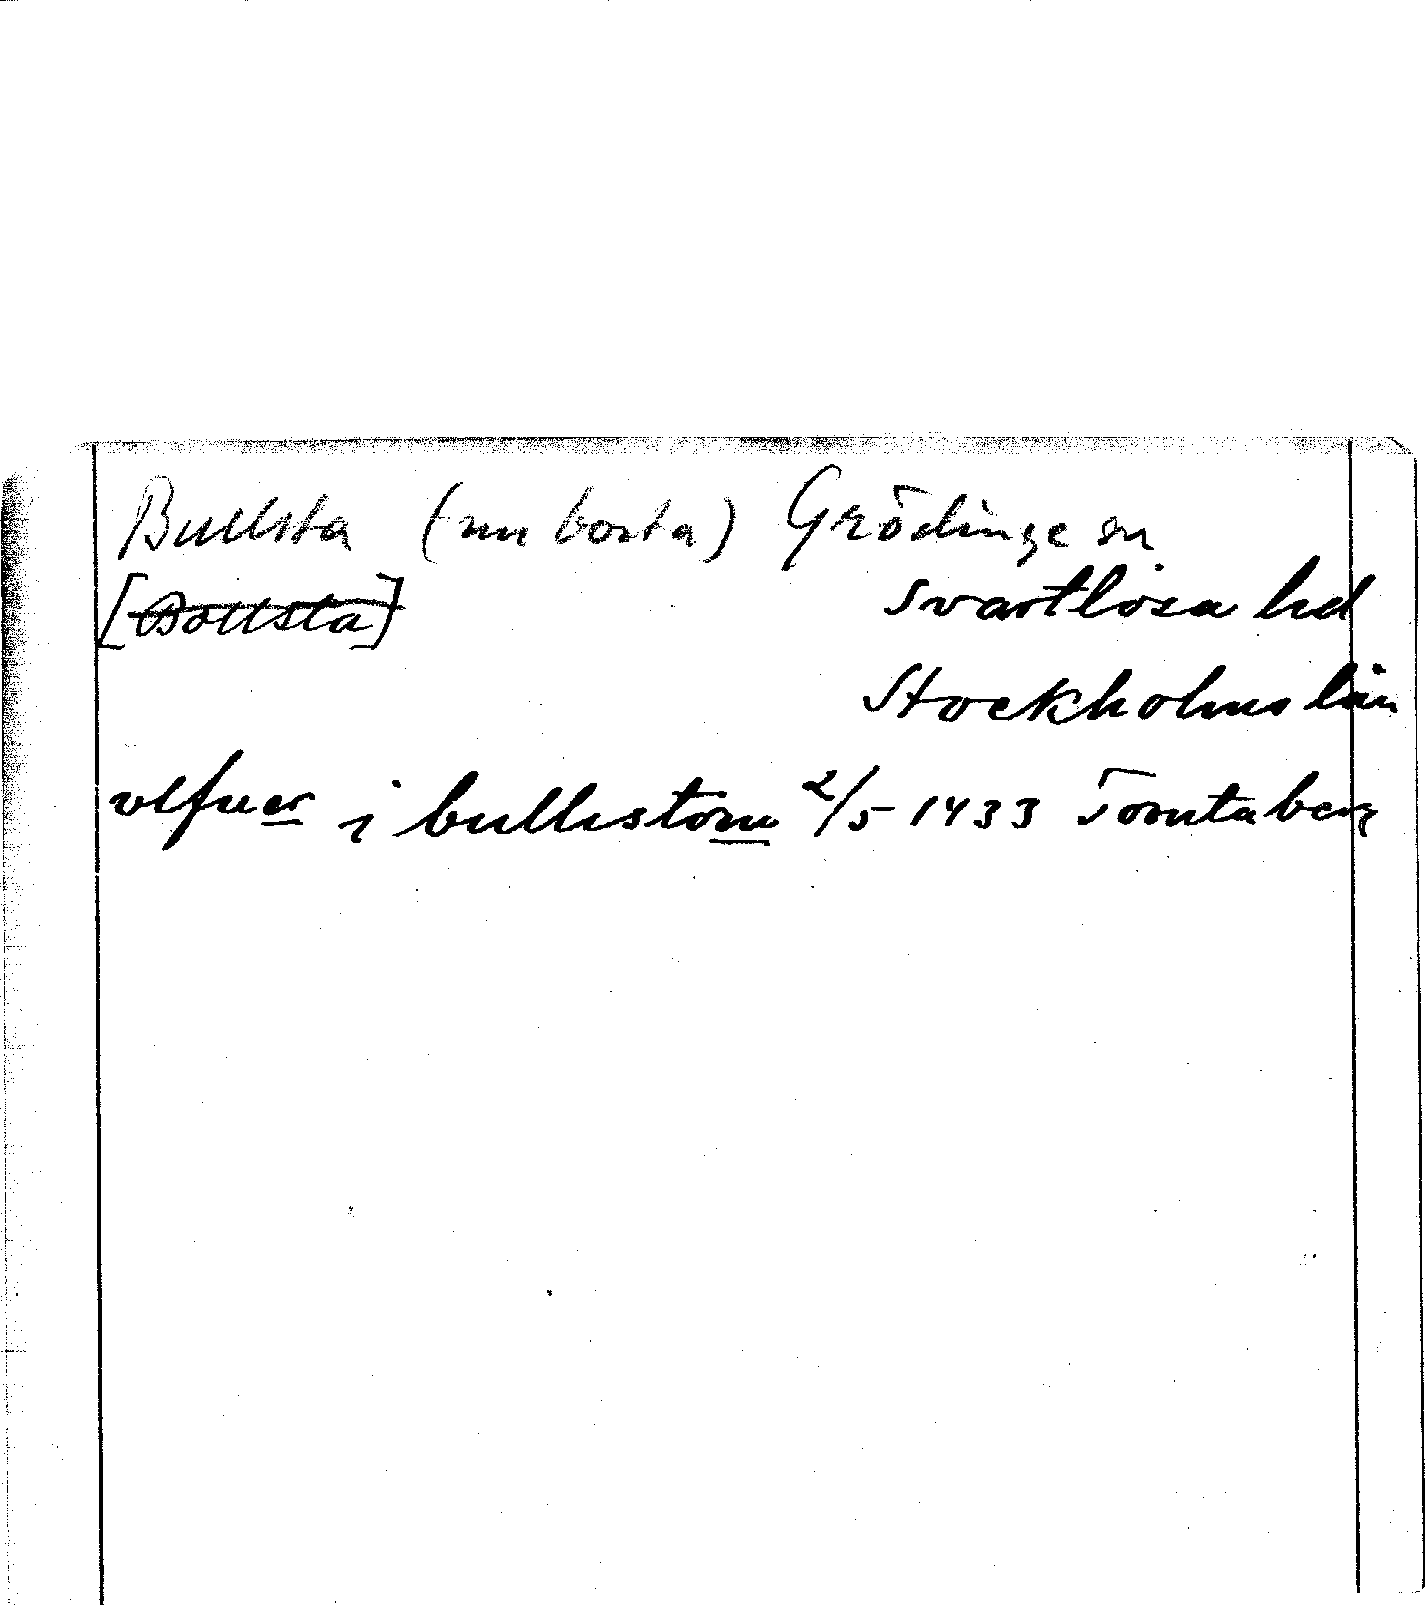 Bullsta (nu borta) Grödinge sn
[Bollsta] Svartlösa hd
Stockholms län
vlfuer i bullistom 2/5 1433 Tomtaberg